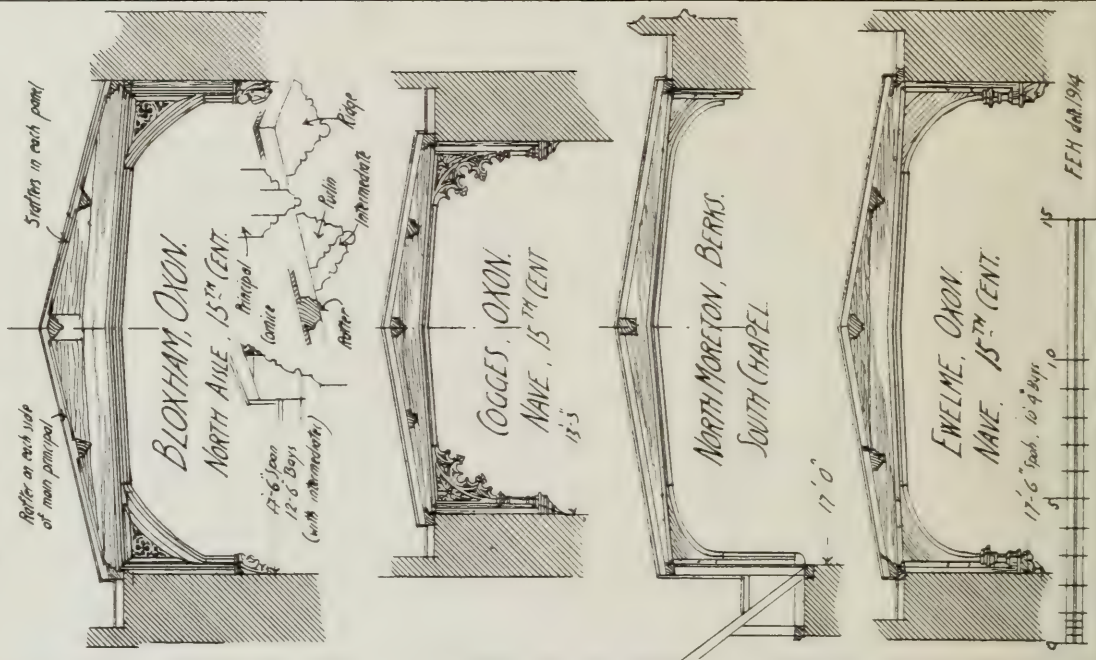 5 rafters in each panel
Rafter on each side
of main principal
BLOXHAM, OXON.
NORTH AISLE, 15TH CENT.
17'-6" Span
12'-6" Bays
(with intermediates)
Cornice
Principal
Rafter
Purlin
Intermediate
Ridge
COGGES, OXON.
NAVE, 15TH CENT
NORTH MORETON, BERKS.
SOUTH CHAPEL.
17' 0"
EWELME, OXON.
NAVE. 15TH CENT.
17'-6" Span. 10' 4" Bays
0 5 10 15
FEH delt. 1914